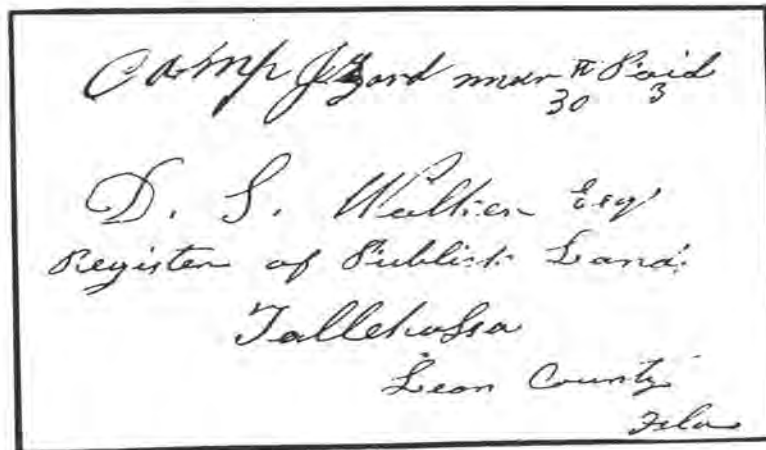 Camp Izard March Paid
30 3
D. S. Walker Esq
Register of Publick Land
Tallehassa
Leon County
Fla